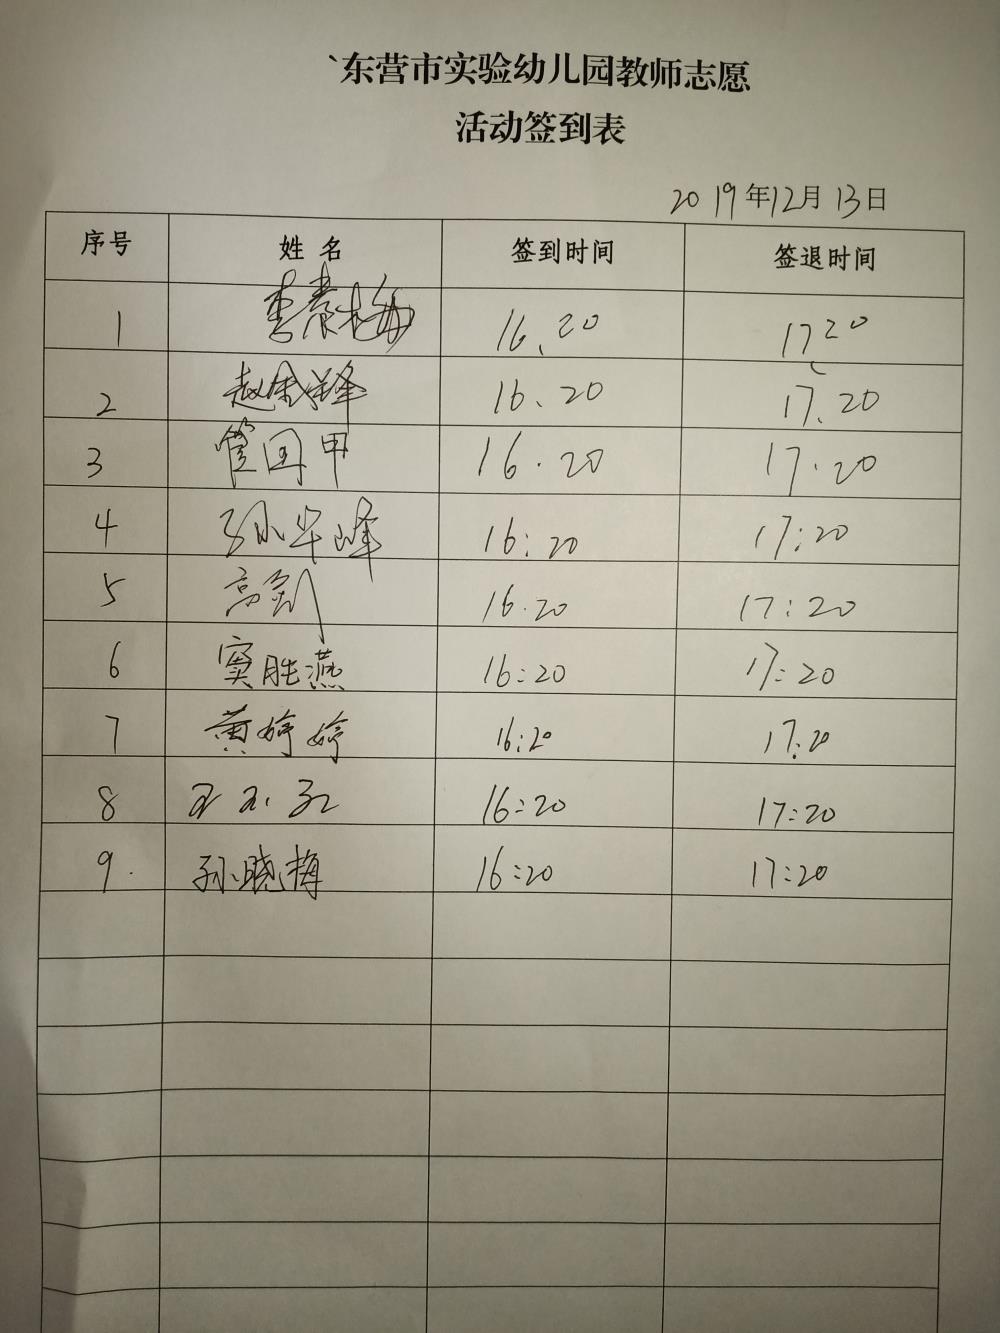 东营市实验幼儿园教师志愿
活动签到表
2019年12月13日
序号 姓名 签到时间 签退时间
1 李春梅 16.20 17 20
2 16.20 17.20
3 管国甲 16.20 17.20
4 孙华峰 16:20 17:20
5 高剑 16.20 17:20
6 窦胜燕 16:20 17:20
7 黄婷婷 16:20 17:20
8 16:20 17:20
9. 孙晓梅 16:20 17:20